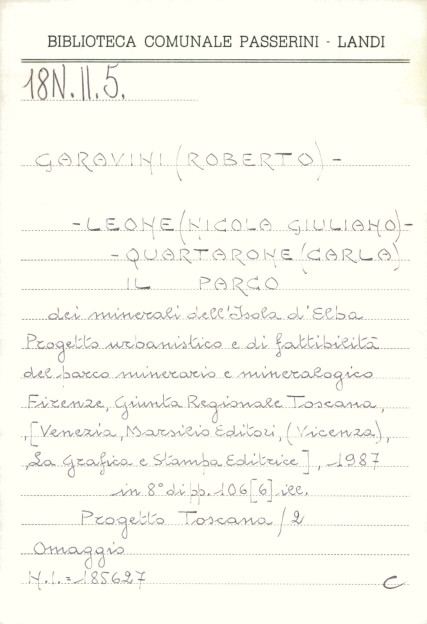 BIBLIOTECA COMUNALE PASSERINI - LANDI
18N.II.5.
GARAVINI (ROBERTO) -
- LEONE (NICOLA GIULIANO) -
- QUARTARONE (CARLA)
IL PARCO
dei minerali dell'Isola d'Elba
Progetto urbanistico e di fattibilità
del parco minerario e mineralogico
Firenze, Giunta Regionale Toscana,
,[Venezia, Marsilio Editori, (Vicenza),
,La Grafica e Stampa Editrice], 1987
in 8° di pp. 106[6] ill.
Progetto Toscana / 2
Omaggio
N.I. = 185627
C